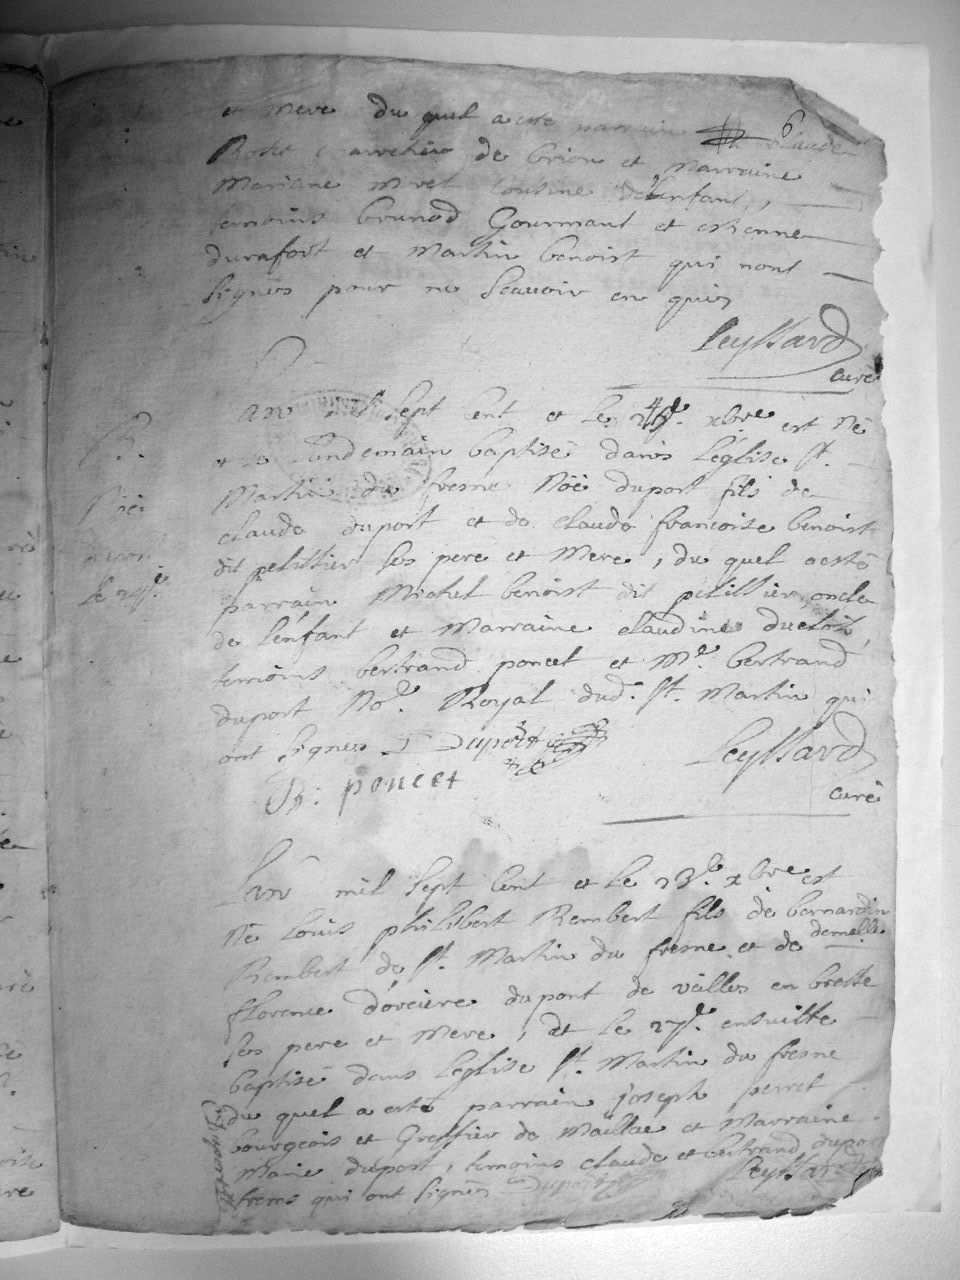 6
et mere du quel a esté parrain claude
de brion et Marraine
Mariane cousine de l'enfant,
temoins brunod Gourmant et estienne
durafort et Martin benoist qui n'ont
signes pour ne scavoir enquis
Leyssard
curé
L'an mil sept cent et le xbre est Né
et le Lendemain baptisé dans L'eglise St.
Martin du fresne Noë duport fils de
claude duport et de claude francoise benoist
dit pelitlier ses pere et Mere, du quel a esté
parrain Michel benoist dit pelillier oncle
de L'enfant et Marraine claudine
temoins bertrand poncet et Me. bertrand
duport Nore. Royal dud. St. Martin qui
ont signes Duport
Leyssard
B: poncet
curé
L'an mil sept cent et le 23e. xbre est
Né Louis philibert Rembert fils de bernardin
Rembert de St. Martin du fresne et de demelle
florence d'orciere dupont de vailles en bresse
ses pere et Mere, et le 27e. ensuitte
baptisé dans L'eglise St. Martin du fresne
du quel a esté parrain joseph perret
bourgeois et Greffier de Maillac et Marraine
Marie duport, temoins claude et bertrand duport
freres qui ont signés Duport Leyssard